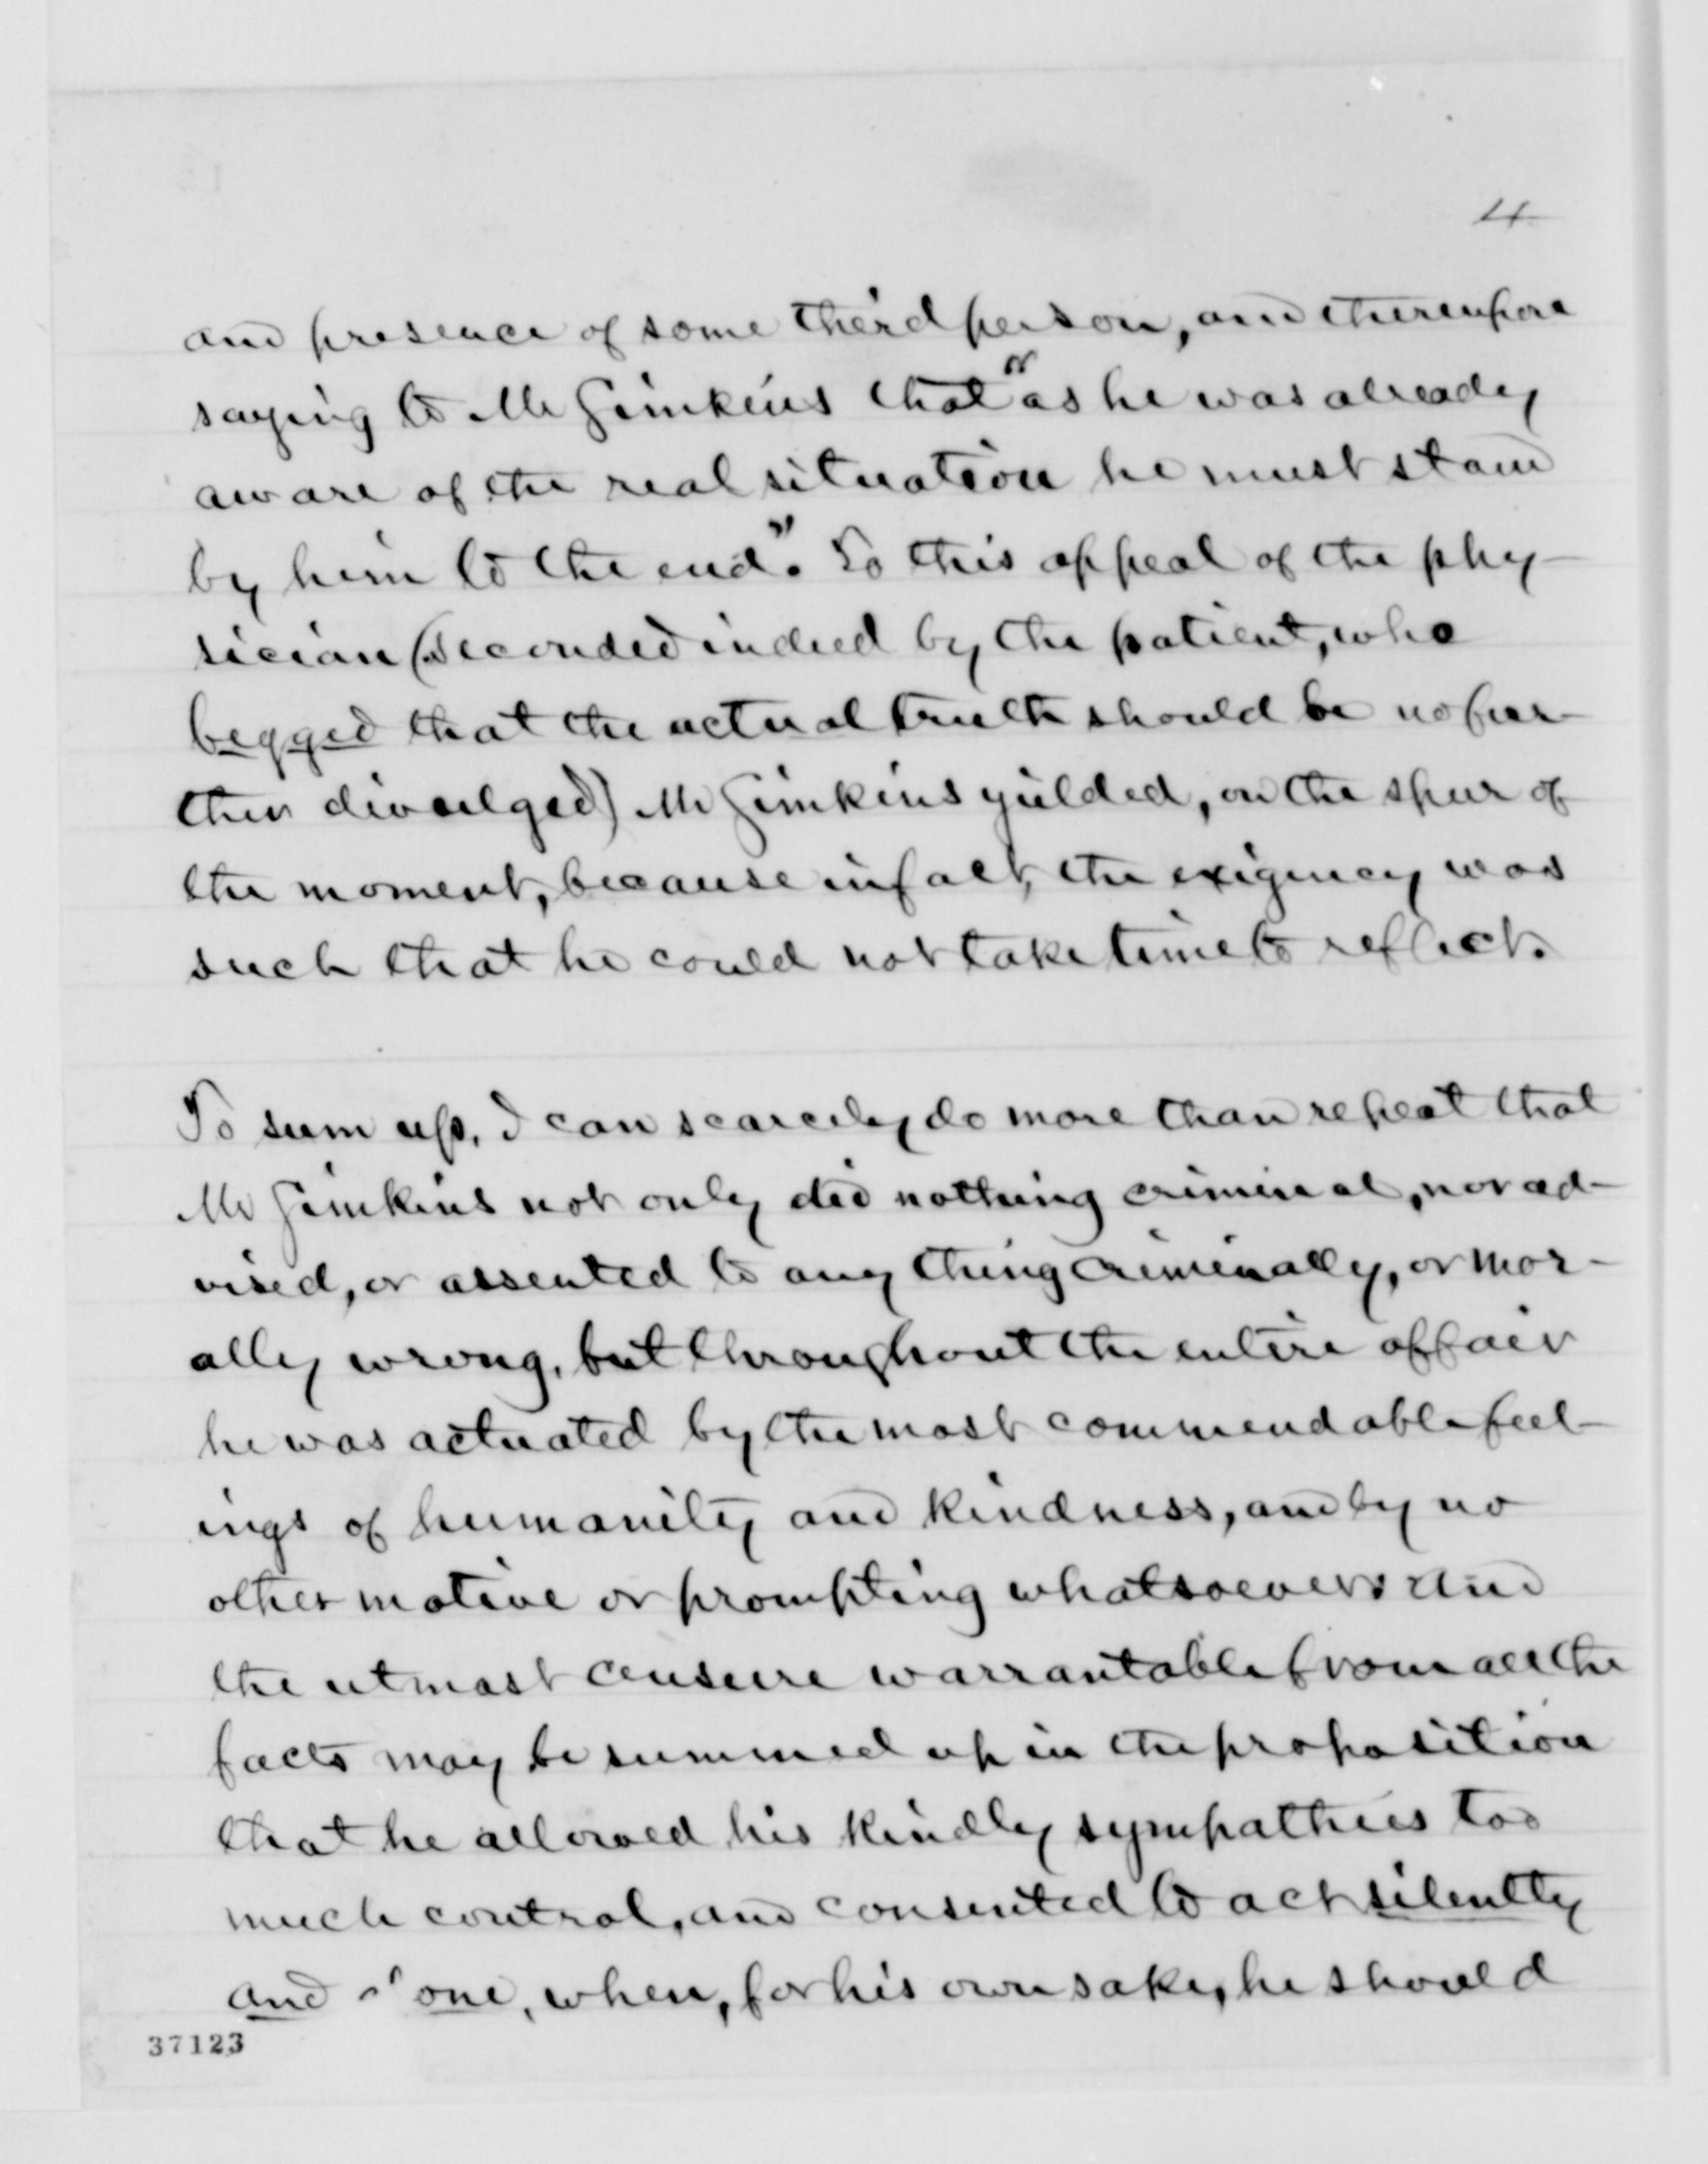 4
and presence of some third person, and thereupon
saying to Mr Jimkins that "as he was already
aware of the real situation he must stand
by him to the end". To this appeal of the phy-
sician (seconded indeed by the patient, who
begged that the actual truth should be no fur-
ther divulged) Mr Jimkins yielded, on the spur of
the moment, because in fact, the exigency was
such that he could not take time to reflect.
To sum up, I can scarcely do more than repeat that
Mr Jimkins not only did nothing criminal, nor ad-
vised, or assented to any thing criminally, or mor-
ally wrong, but throughout the entire affair
he was actuated by the most commendable feel-
ings of humanity and kindness, and by no
other motive or prompting whatsoever: and
the utmost censure warrantable from all the
facts may be summed up in the proposition
that he allowed his kindly sympathies too
much control, and consented to act silently
and alone, when, for his own sake, he should
37123